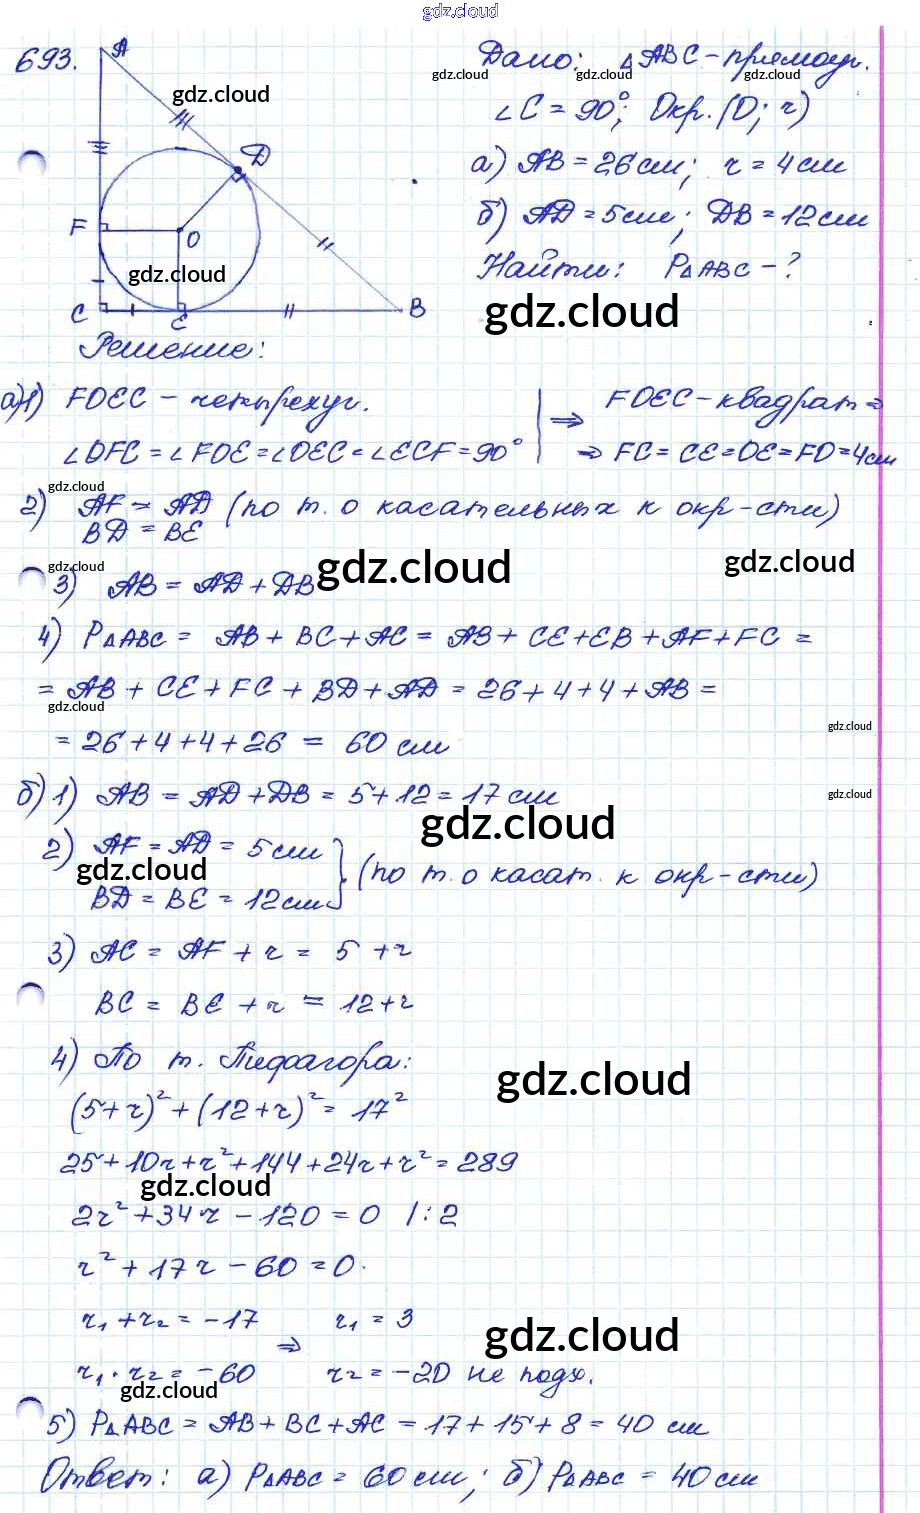 gdz.cloud
693.
A
Дано: △ABC - прямоуг.
gdz.cloud gdz.cloud
gdz.cloud
∠C = 90°; Окр. (O; r)
D
а) AB = 26 см; r = 4 см
б) AD = 5 см; DB = 12 см
F
O
gdz.cloud
Найти: P△ABC - ?
C E B
gdz.cloud
Решение:
а) 1) FOEC - четырехуг. | ⇒ FOEC - квадрат ⇒
∠OFC = ∠FOE = ∠OEC = ∠ECF = 90° | ⇒ FC = CE = OE = FO = 4 см
gdz.cloud
2) AF = AD (по т. о касательных к окр-сти)
BD = BE
gdz.cloud gdz.cloud gdz.cloud
3) AB = AD + DB
4) P△ABC = AB + BC + AC = AB + CE + EB + AF + FC =
= AB + CE + FC + BD + AD = 26 + 4 + 4 + AB =
gdz.cloud
gdz.cloud
= 26 + 4 + 4 + 26 = 60 см
б) 1) AB = AD + DB = 5 + 12 = 17 см
gdz.cloud
gdz.cloud
2) AF = AD = 5 см
gdz.cloud
} (по т. о касат. к окр-сти)
BD = BE = 12 см
3) AC = AF + r = 5 + r
BC = BE + r = 12 + r
4) По т. Пифагора:
gdz.cloud
(5 + r)² + (12 + r)² = 17²
25 + 10r + r² + 144 + 24r + r² = 289
gdz.cloud
2r² + 34r - 120 = 0 / : 2
r² + 17r - 60 = 0.
r₁ + r₂ = -17 ⇒ r₁ = 3
gdz.cloud
r₁ · r₂ = -60 r₂ = -20 не подх.
gdz.cloud
5) P△ABC = AB + BC + AC = 17 + 15 + 8 = 40 см
Ответ: а) P△ABC = 60 см; б) P△ABC = 40 см